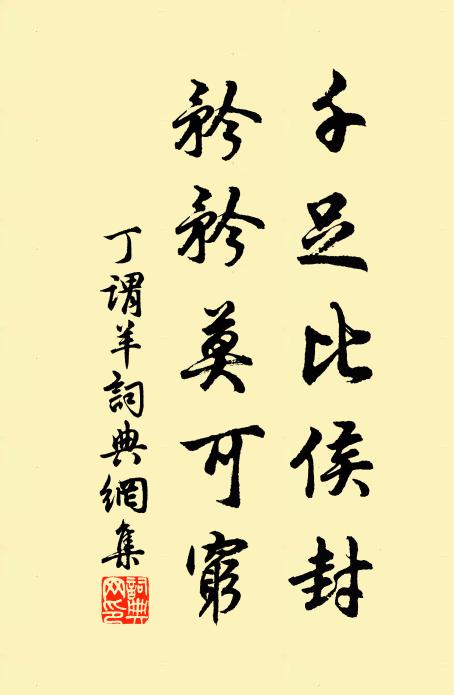 千足比侯封
矜矜莫可窮
丁謂羊詞典網集
詞典网印